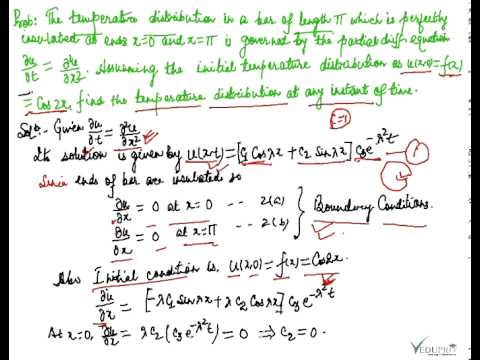 Prob: The temperature distribution in a bar of length π which is perfectly
insulated at ends x=0 and x=π is governed by the partial diff equation
∂u/∂t = ∂²u/∂x². Assuming the initial temperature distribution as u(x,0)=f(x)
= Cos2x, find the temperature distribution at any instant of time.
Sol:- Given ∂u/∂t = ∂²u/∂x² c=1
Its solution is given by u(x,t) = [c₁ Cos λx + c₂ Sin λx] c₃ e^{-λ²t} — 1
Since ends of bar are insulated so
∂u/∂x = 0 at x=0 -- 2(a)
∂u/∂x = 0 at x=π -- 2(b) } Boundary Conditions.
Also Initial condition is, u(x,0) = f(x) = Cos2x
∂u/∂x = [-λc₁ Sin λx + λc₂ Cos λx] c₃ e^{-λ²t}
At x=0, ∂u/∂x = λc₂ (c₃ e^{-λ²t}) = 0 ⇒ c₂ = 0.
VEDUPRO